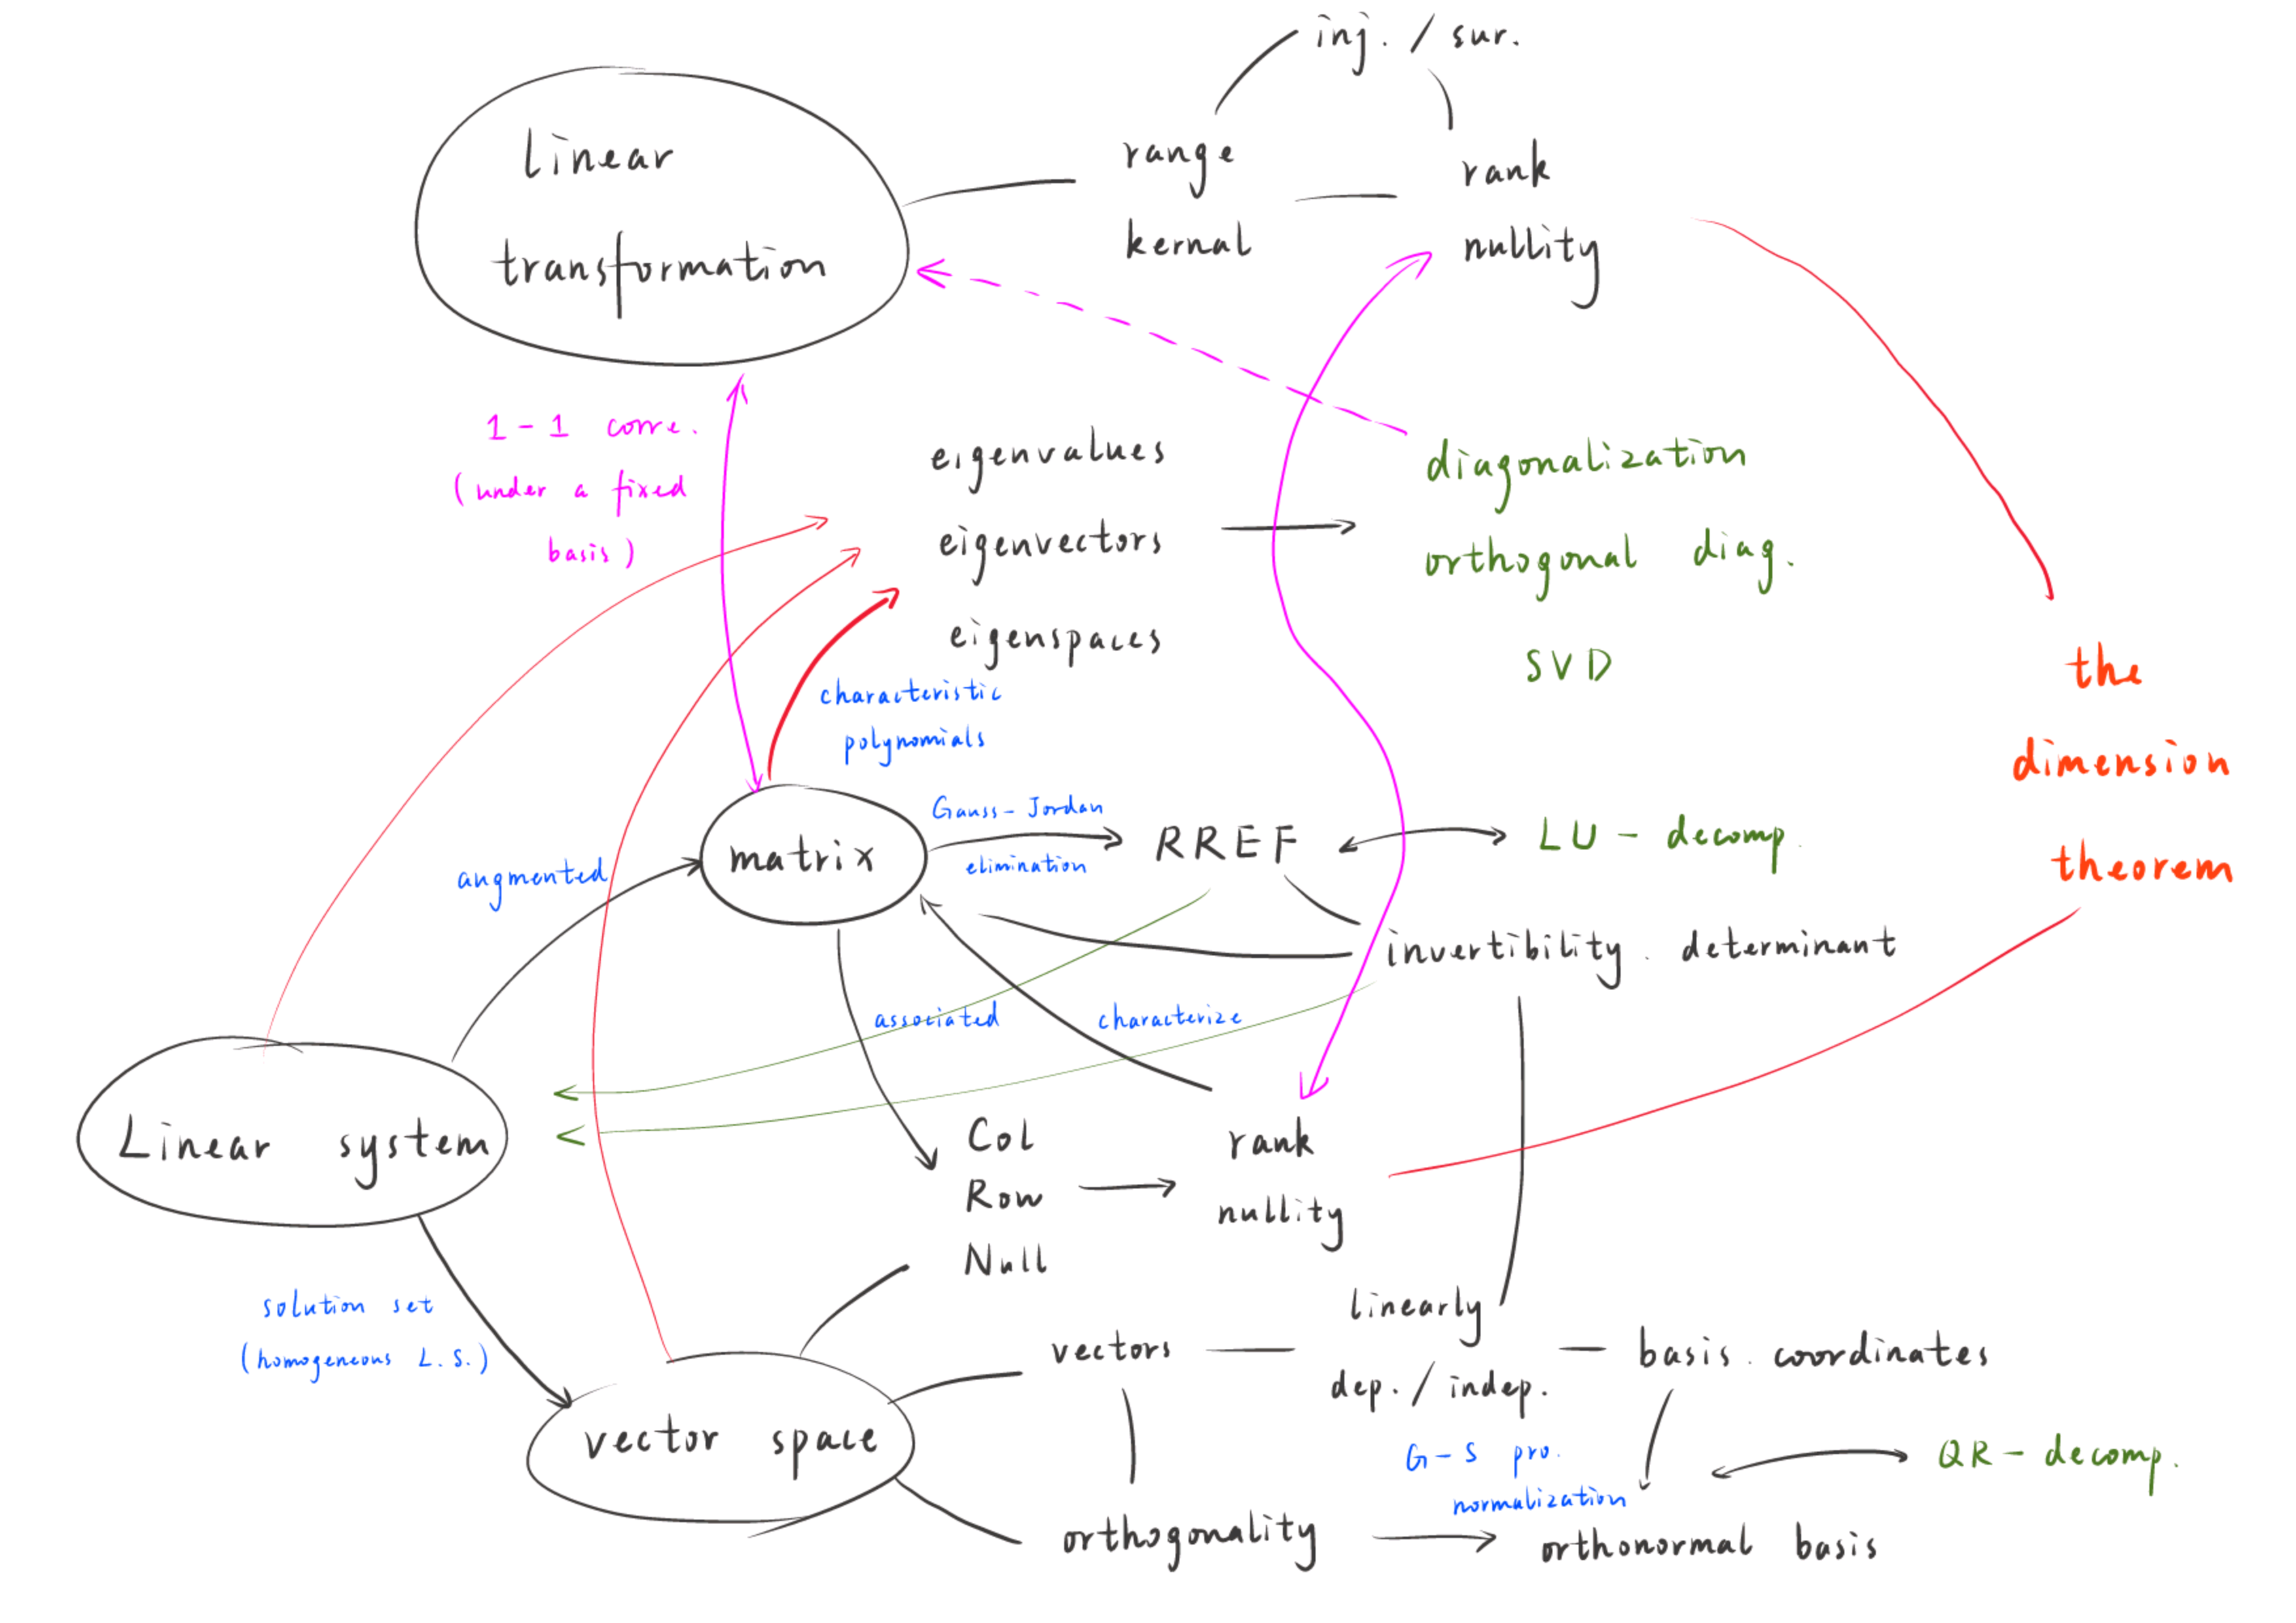 inj. / sur.
linear
transformation
range
kernal
rank
nullity
1-1 corre.
(under a fixed
basis)
eigenvalues
eigenvectors
eigenspaces
diagonalization
orthogonal diag.
SVD
the
dimension
theorem
characteristic
polynomials
matrix
Gauss-Jordan
elimination
RREF
LU-decomp.
augmented
invertibility. determinant
associated
characterize
Linear system
Col
Row
Null
rank
nullity
solution set
(homogeneous L.S.)
vector space
vectors
linearly
dep. / indep.
basis. coordinates
G-S pro.
normalization
QR-decomp.
orthogonality
orthonormal basis